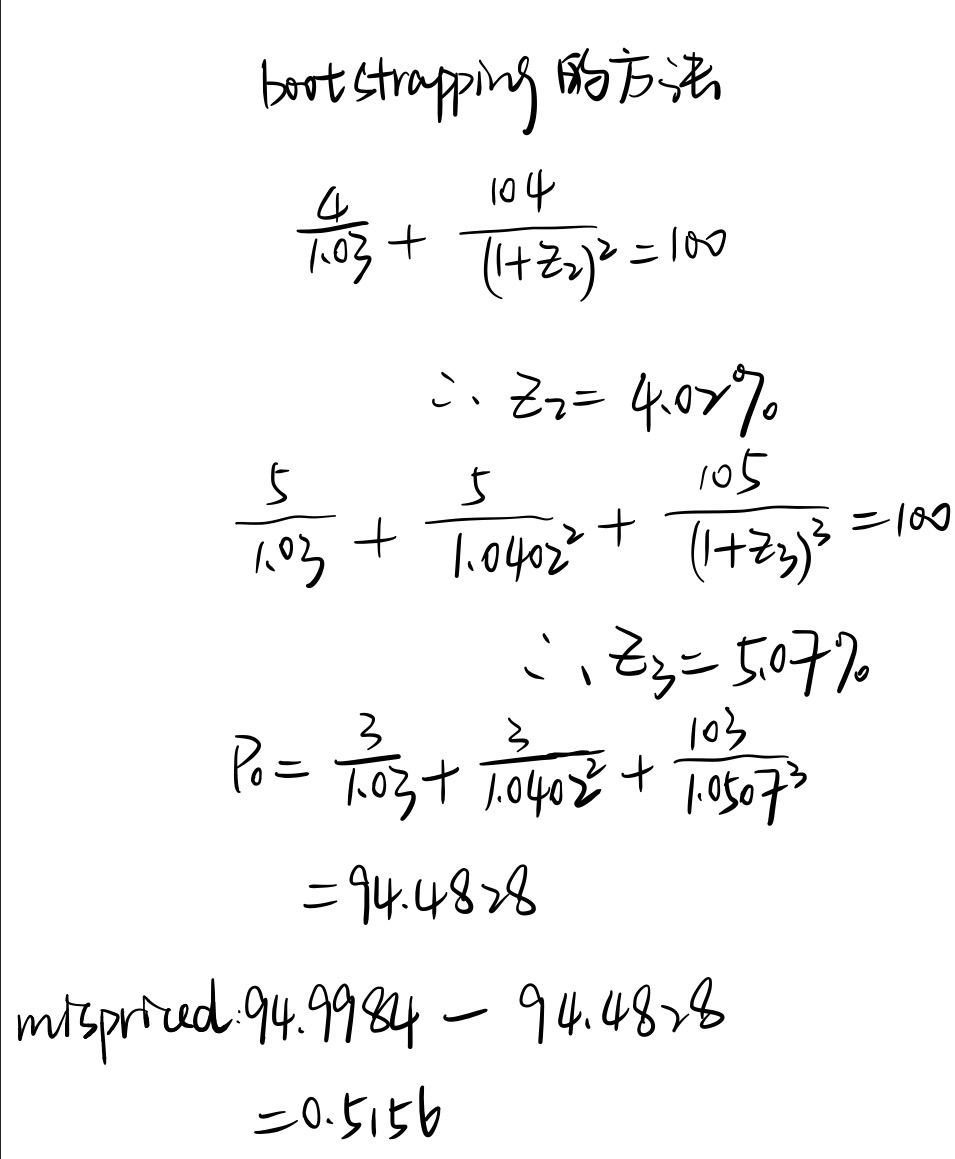 bootstrapping 的方法
4/1.03 + 104/(1+Z₂)² = 100
∴ Z₂ = 4.02%
5/1.03 + 5/1.0402² + 105/(1+Z₃)³ = 100
∴ Z₃ = 5.07%
P₀ = 3/1.03 + 3/1.0402² + 103/1.0507³
= 94.4828
mispriced: 94.9984 - 94.4828
= 0.5156